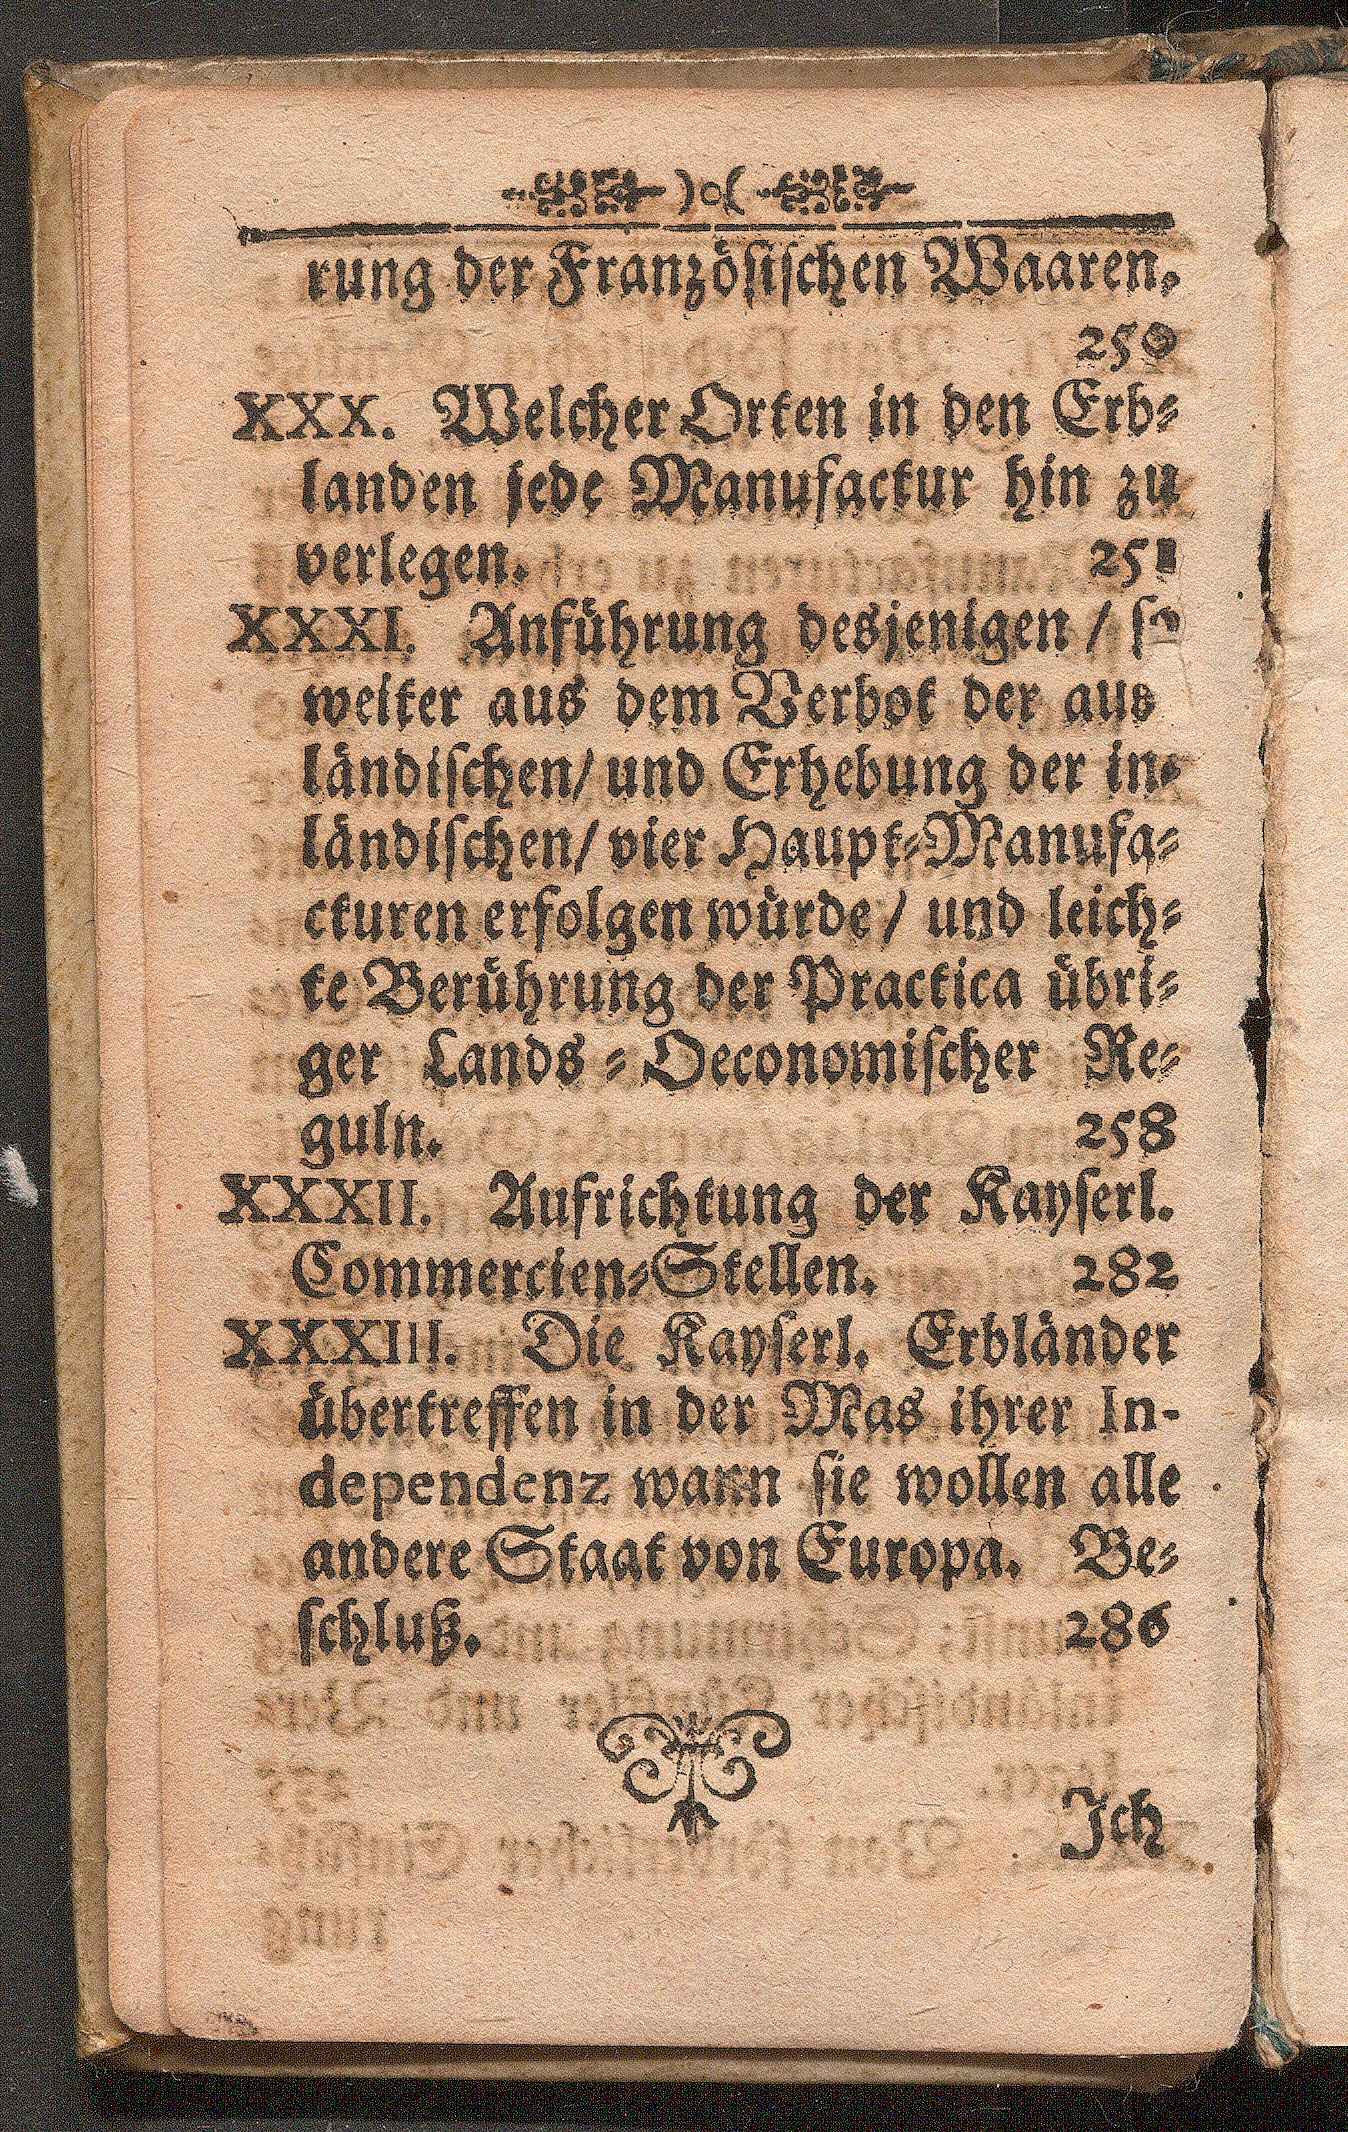 rung der Französischen Waaren.
250
XXX. Welcher Orten in den Erb-
landen jede Manufactur hin zu
verlegen. 251
XXXI. Anführung desjenigen / so
weiter aus dem Verbot der aus
ländischen / und Erhebung der in-
ländischen / vier Haupt-Manufa-
cturen erfolgen würde / und leich-
te Berührung der Practica übri-
ger Lands-Oeconomischer Re-
guln. 258
XXXII. Aufrichtung der Kayserl.
Commercien-Stellen. 282
XXXIII. Die Kayserl. Erbländer
übertreffen in der Mas ihrer In-
dependenz wann sie wollen alle
andere Staat von Europa. Be-
schluß. 286
Ich